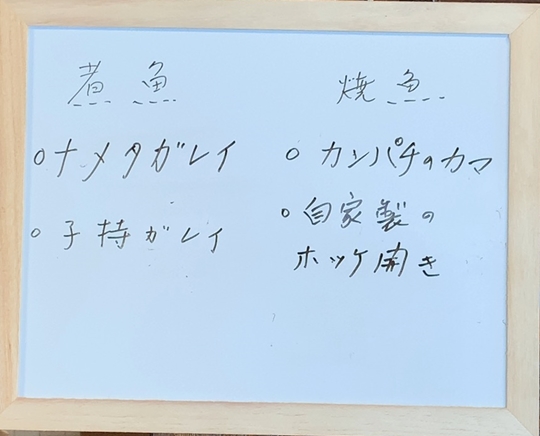 煮魚
○ナメタガレイ
○子持ガレイ
焼魚
○カンパチのカマ
○自家製の
ホッケ開き